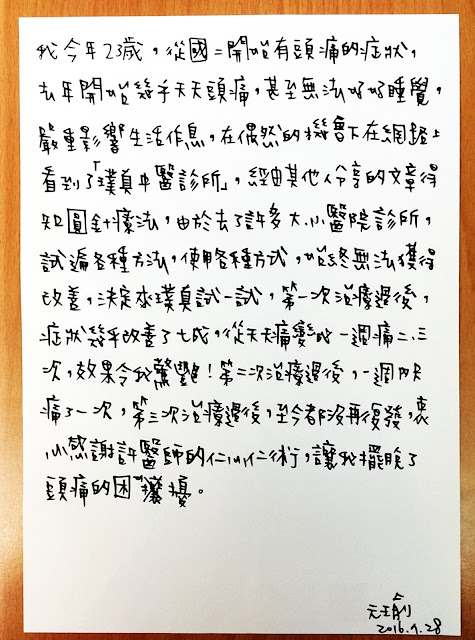 我今年23歲,從國二開始有頭痛的症狀,
去年開始幾乎天天頭痛,甚至無法好好睡覺,
嚴重影響生活作息,在偶然的機會下在網路上
看到了「璞真中醫診所」,經由其他人分享的文章得
知圓針療法,由於去了許多大小醫院診所,
試遍各種方法,使用各種方式,始終無法獲得
改善,決定來璞真試一試,第一次治療過後,
症狀幾乎改善了七成,從天天痛變成一週痛二、三
次,效果令我驚艷!第二次治療過後,一週only
痛了一次,第三次治療過後,至今都沒再復發,衷
心感謝許醫師的仁心仁術,讓我擺脫了
頭痛的困擾。
2016.1.28